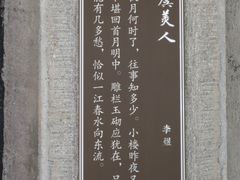 虞美人
李煜
月何时了，往事知多少。小楼昨夜又
堪回首月明中。雕栏玉砌应犹在，只
能有几多愁，恰似一江春水向东流。